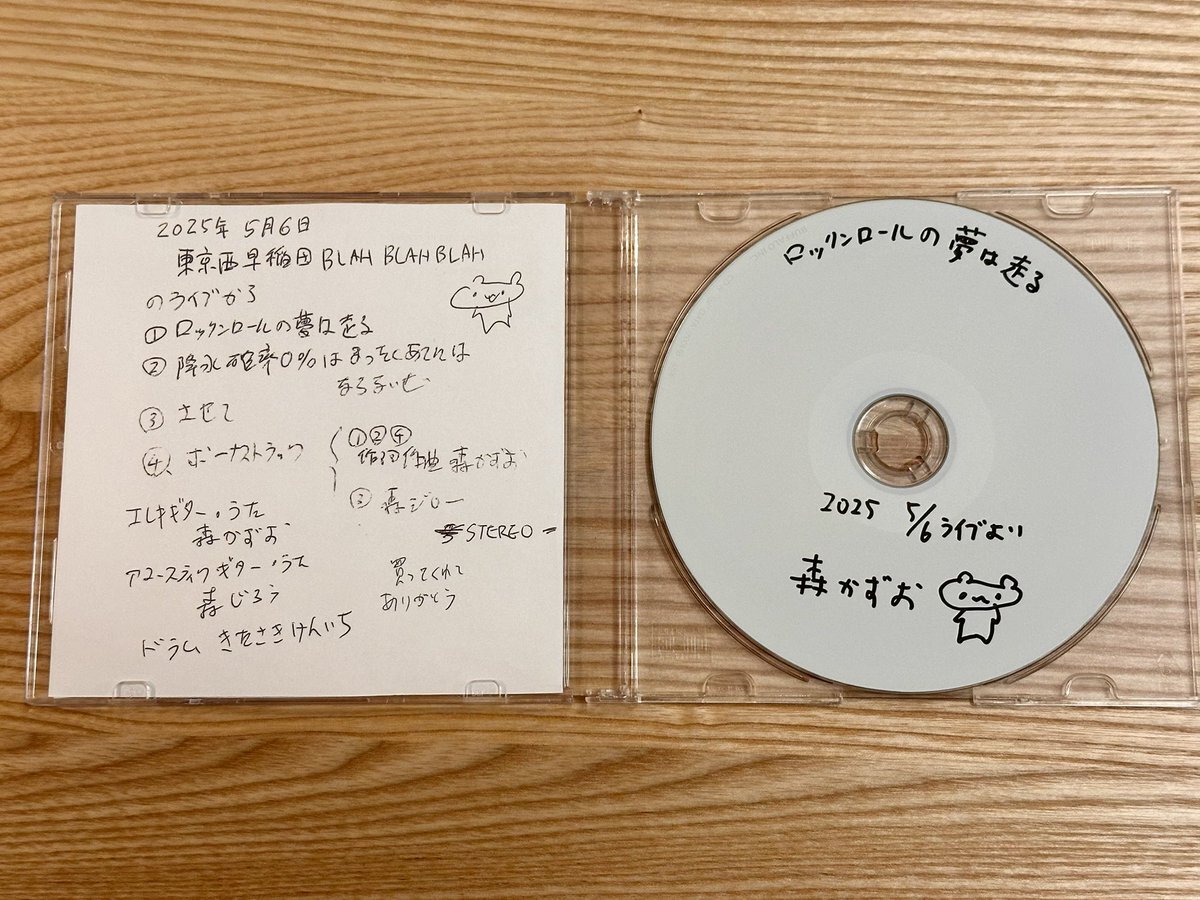 2025年 5月6日
東京西早稲田 BLAH BLAH BLAH
のライブから
① ロックンロールの夢は走る
② 降水確率0%はまったくあてには
ならないぜ
③ させて
④ ボーナストラック
①②④
作詞作曲 森かずお
③ 森ジロー
STEREO
エレキギター・うた
森かずお
アコースティックギター・うた
森じろう
ドラム きたさきけんいち
買ってくれて
ありがとう
ロックンロールの夢は走る
2025 5/6 ライブより
森かずお